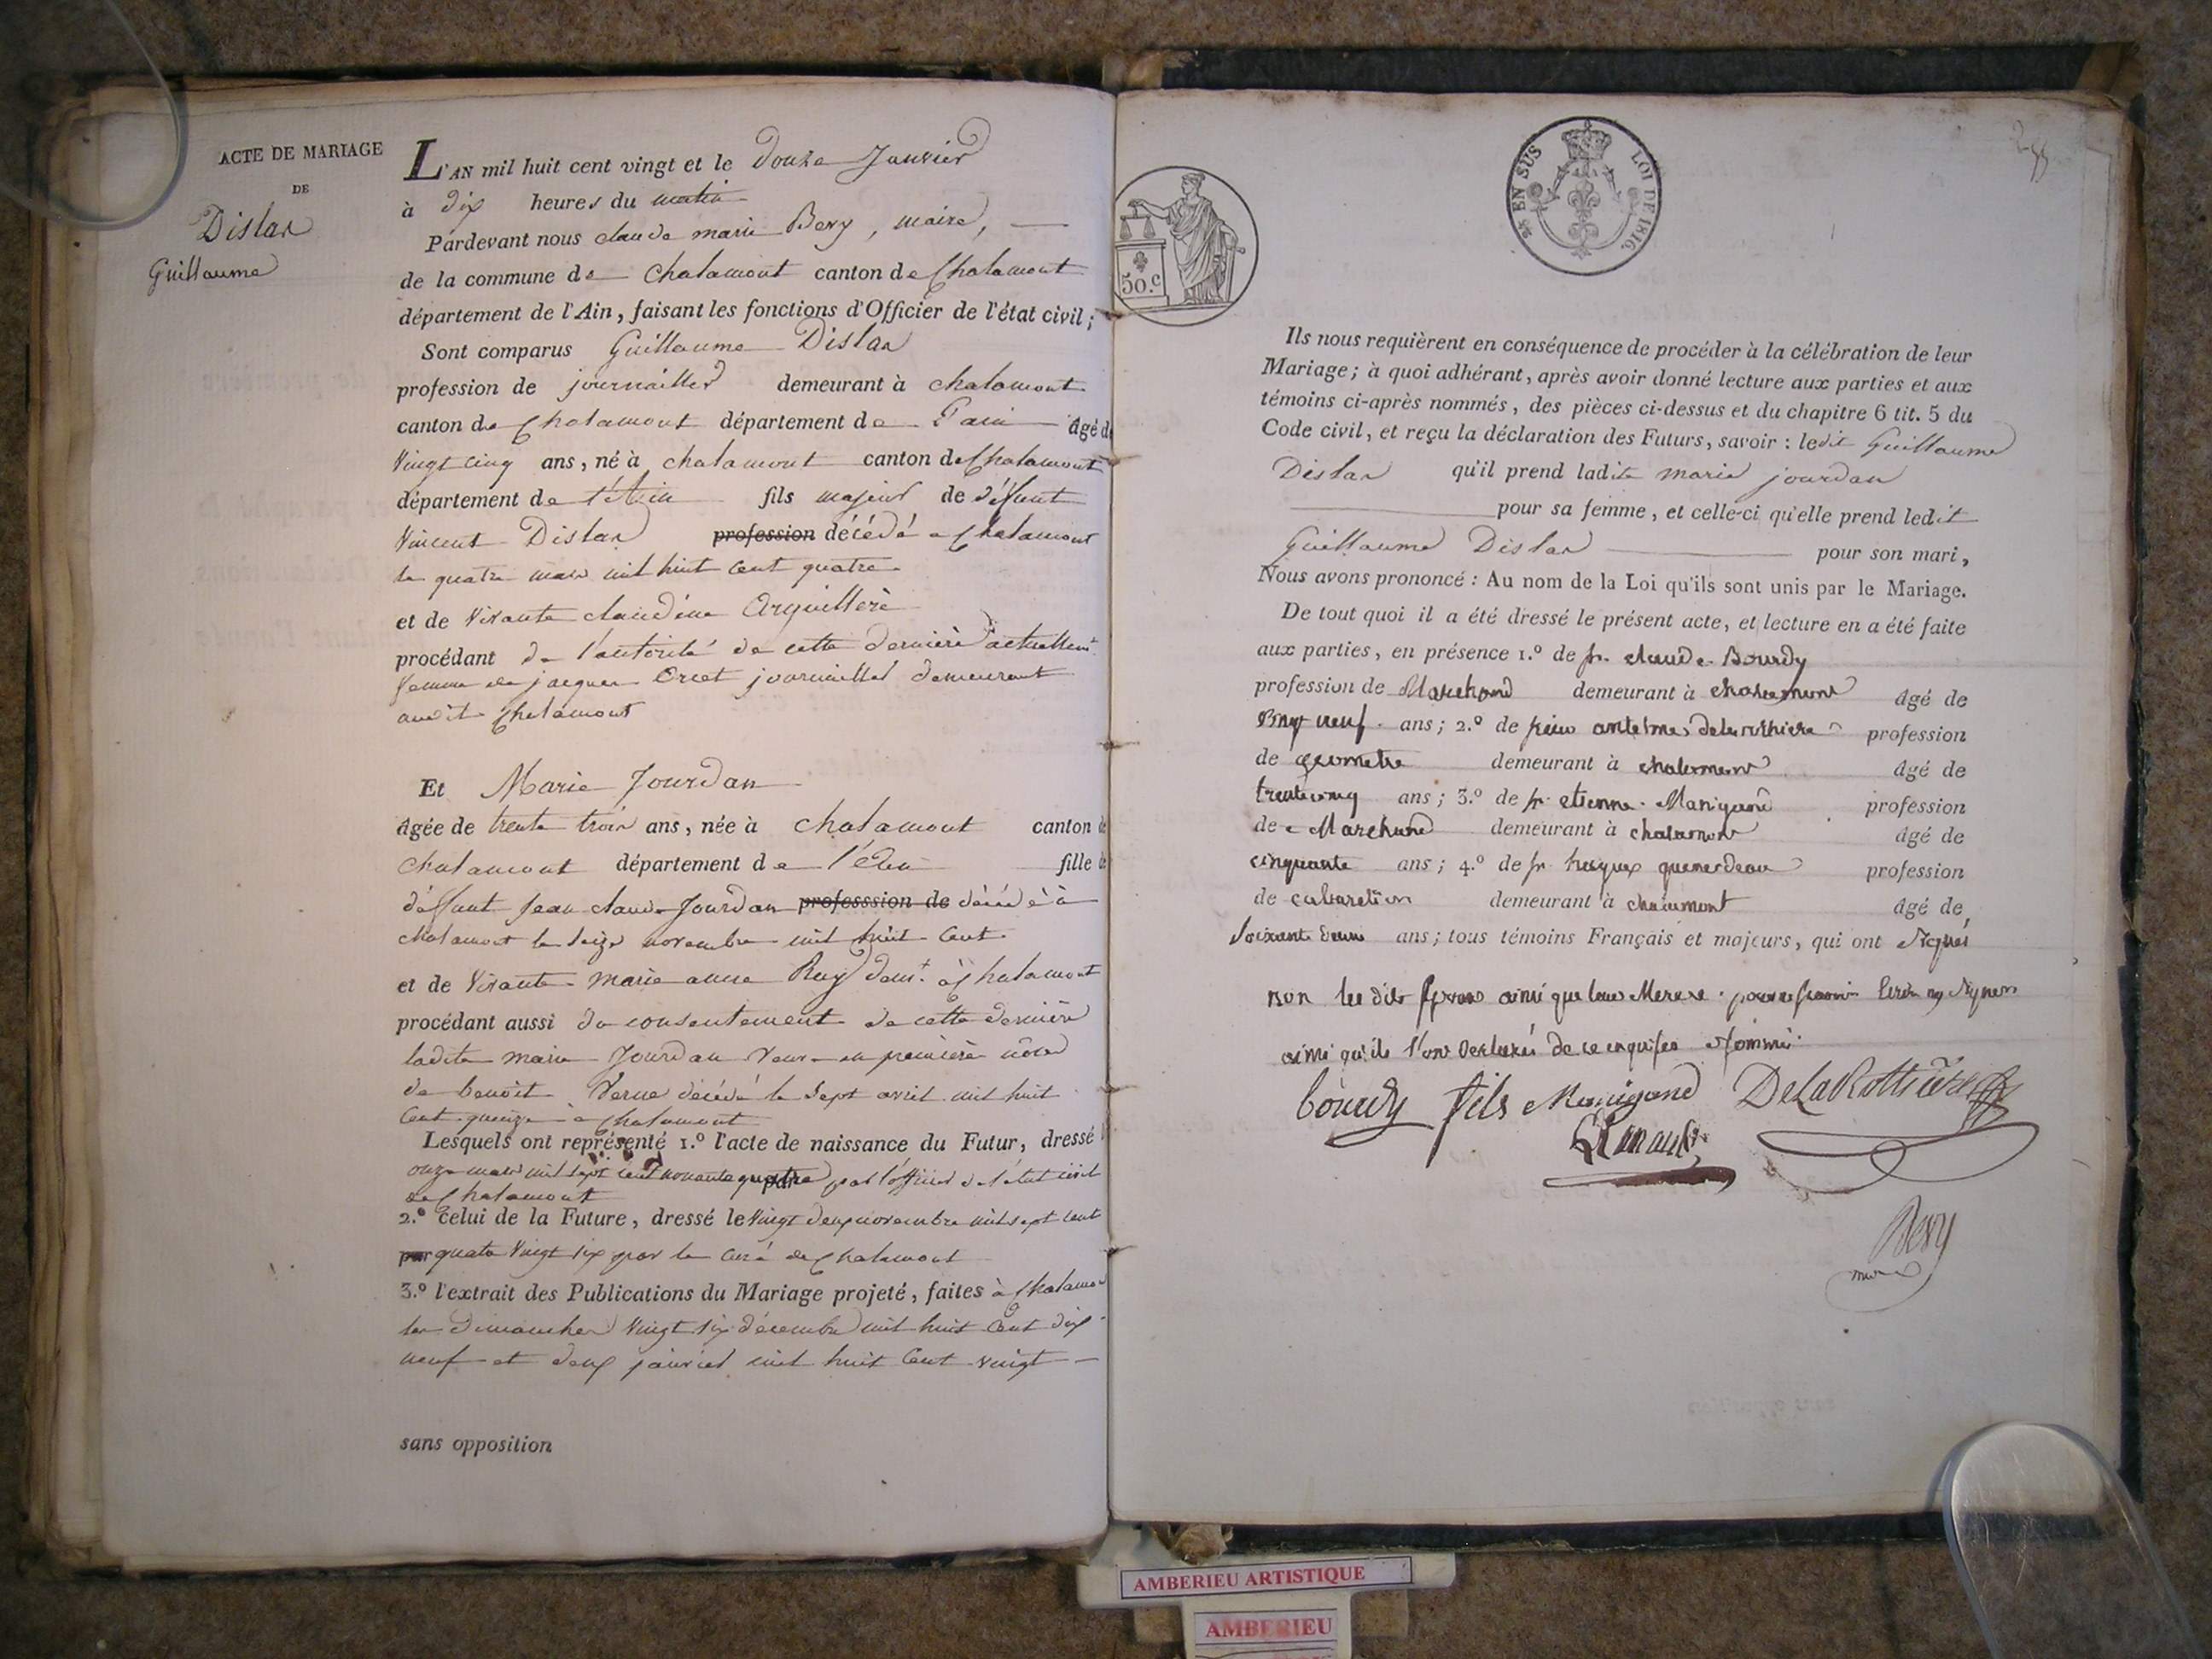 ACTE DE MARIAGE
DE
Dislar
Guillaume
L'AN mil huit cent vingt et le douze Janvier
à dix heures du matin
Pardevant nous claude marie Bevy, maire,
de la commune de Chalamont canton de Chalamont
département de l'Ain, faisant les fonctions d'Officier de l'état civil;
Sont comparus Guillaume Dislar
profession de journaillier demeurant à chalamont
canton de Chalamont département de l'ain âgé de
vingt cinq ans, né à chalamont canton de Chalamont
département de l'Ain fils majeur de déffunt
Vincent Dislar profession décédé a Chalamont
le quatre mars mil huit cent quatre
et de vivante claudine Arguilleré
procédant de l'autorité de cette dernière actuellemt
femme de jacques Orset journaillier demeurant
audit Chalamont
Et Marie Jourdan
âgée de trente trois ans, née à chalamont canton de
chalamont département de l'Ain fille de
déffunt Jean claude Jourdan professsion de décédé à
chalamont le seize novembre mil huit cent
et de vivante marie anne Ruy demt à Chalamont
procédant aussi du consentement de cette dernière
ladite marie Jourdan veuve en première nôce
de benoit Verne décédé le sept avril mil huit
cent quinze à Chalamont
Lesquels ont représenté 1.º l'acte de naissance du Futur, dressé
onze mars mil sept cent nonante quatre par l'officier de l'état civil
de Chalamont
2.º celui de la Future, dressé le vingt deux novembre mil sept cent
par quatre vingt six par le curé de Chalamont
3.º l'extrait des Publications du Mariage projeté, faites à Chalamont
les dimanches vingt six décembre mil huit cent dix
neuf et deux janvier mil huit cent vingt
sans opposition
50.c
25 EN SUS LOI DE 1816.
Ils nous requièrent en conséquence de procéder à la célébration de leur
Mariage; à quoi adhérant, après avoir donné lecture aux parties et aux
témoins ci-après nommés, des pièces ci-dessus et du chapitre 6 tit. 5 du
Code civil, et reçu la déclaration des Futurs, savoir : ledit Guillaume
Dislar qu'il prend ladite marie jourdan
pour sa femme, et celle-ci qu'elle prend ledit
Guillaume Dislar pour son mari,
Nous avons prononcé : Au nom de la Loi qu'ils sont unis par le Mariage.
De tout quoi il a été dressé le présent acte, et lecture en a été faite
aux parties, en présence 1.º de sr. claude Bourdy
profession de Marchand demeurant à chalamont âgé de
vingt neuf ans; 2.º de antelme delarothiere profession
de geometre demeurant à chalamont âgé de
trente cinq ans; 3.º de sr. etienne Manigand profession
de Marchand demeurant à chalamont âgé de
cinquante ans; 4.º de sr. profession
de cabaretier demeurant à chalamont âgé de
soixante deux ans; tous témoins Français et majeurs, qui ont signés
non les dits ainsi que leurs Meres
ainsi qu'ils l'ont declarés de ce enquises
bourdy fils Manigand DeLaRottiere
Bevy
AMBERIEU ARTISTIQUE
AMBERIEU